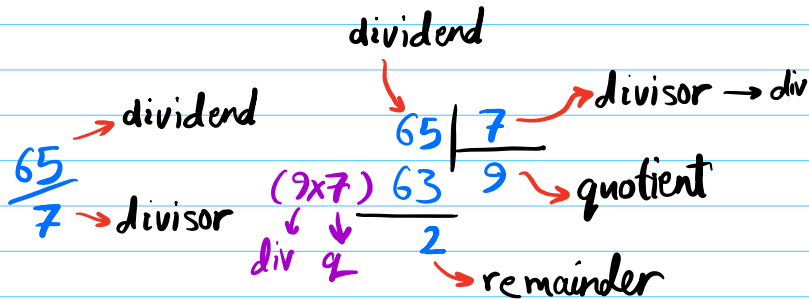 dividend
65 7 divisor → div
dividend
65
7 divisor
(9x7) 63 9 quotient
div q 2
remainder